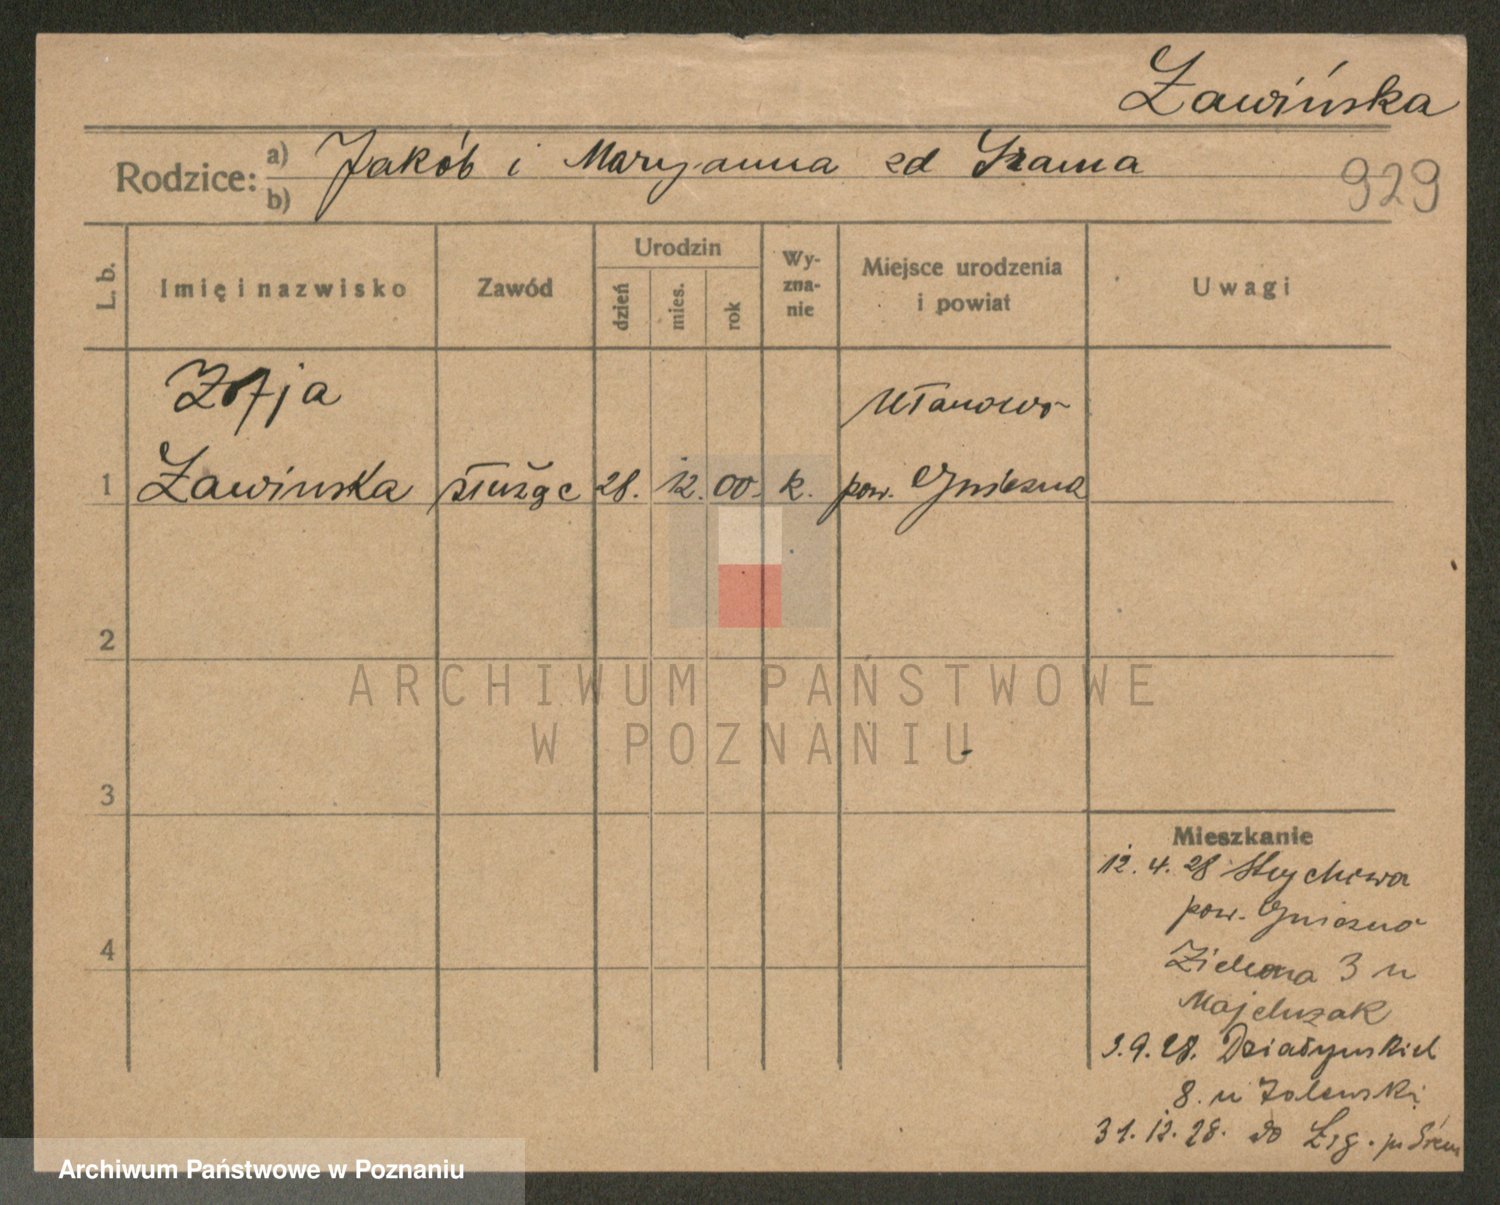 Zawińska
Rodzice:
a) Jakób i Maryanna zd Szama
b)
929
L. b.
Imię i nazwisko
Zawód
Urodzin
dzień
mies.
rok
Wy-
zna-
nie
Miejsce urodzenia
i powiat
Uwagi
Zofja
Ułanowo
1 Zawinska służąc 28. 12. 00. k. pow. Gniezno
2
3
4
ARCHIWUM PAŃSTWOWE
W POZNANIU
Mieszkanie
12. 4. 28
pow. Gniezno
Zielona 3 u
Majchrzak
3. 9. 28. Działyńskich
8. u Zalewski
31. 12. 28. do
Archiwum Państwowe w Poznaniu